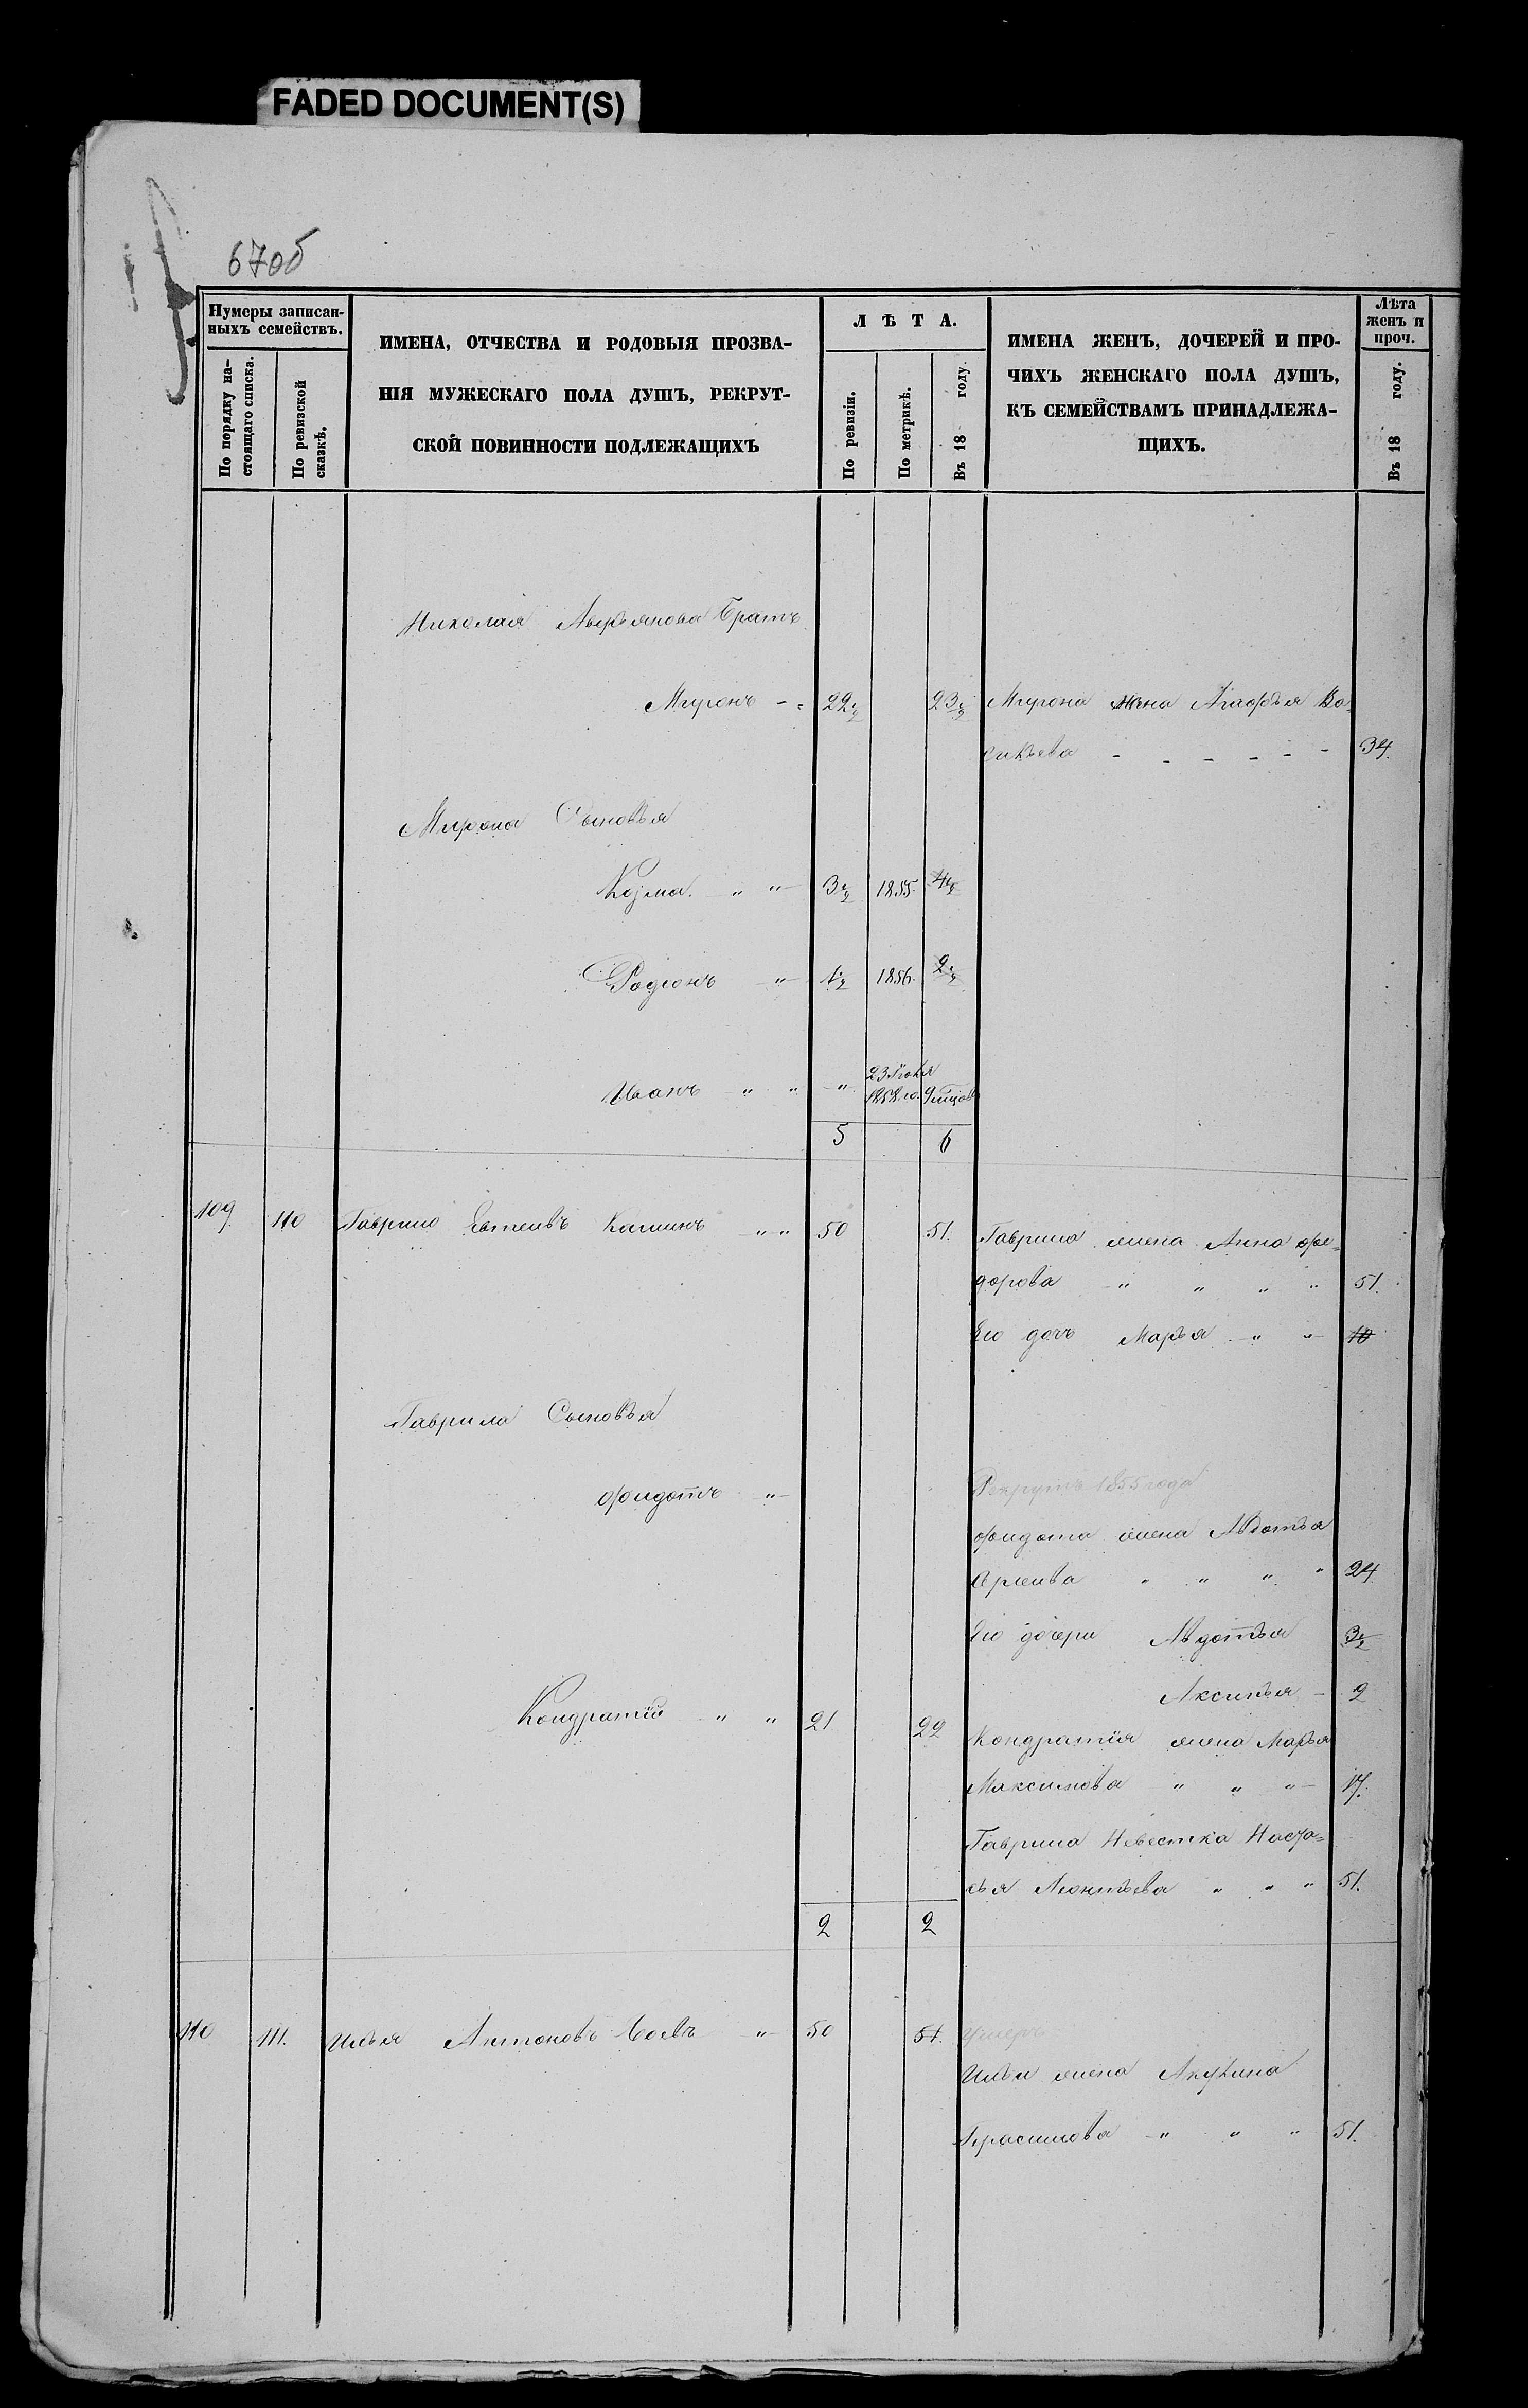 FADED DOCUMENT(S)
670б
Нумеры записан-
ныхъ семействъ.
По порядку на-
стоящаго списка.
По ревизской
сказкѣ.
ИМЕНА, ОТЧЕСТВА И РОДОВЫЯ ПРОЗВА-
НІЯ МУЖЕСКАГО ПОЛА ДУШЪ, РЕКРУТ-
СКОЙ ПОВИННОСТИ ПОДЛЕЖАЩИХЪ
Л Ѣ Т А.
По ревизіи.
По метрикѣ.
Въ 18 году.
ИМЕНА ЖЕНЪ, ДОЧЕРЕЙ И ПРО-
ЧИХЪ ЖЕНСКАГО ПОЛА ДУШЪ,
КЪ СЕМЕЙСТВАМЪ ПРИНАДЛЕЖА-
ЩИХЪ.
Лѣта
женъ и
проч.
Въ 18 году.
Николая Аверьянова Братъ
Миронъ - - 22½ 23½ Мирона жена Агафья Ва-
сильева - - - - - - 34.
Мирона Сыновья
Козма. " " 3½ 1855. 4½
Родіонъ " 1½ 1856. 2½
Иванъ " " "
5 6
109 110 Гаврило Евтеевъ " " 50 51. Гаврила жена Анна Фе-
дорова " " " " 51.
Его дочь Марья " " 10
Гаврила Сыновья
Фидотъ " Рекрутъ 1855 года
Фидота жена Авдотья
" " " " 24
Его дочери Авдотья 3½
Аксинья - 2
Кондратій " " 21 22 Кондратія жена Марья
Максимова " " " 17.
Гаврила Невестка Наста-
сья Леонтьева " " " 51.
2 2
110 111. Илья Антоновъ " 50 51. Умеръ
Ильи жена Акулина
Герасимова " " " 51.